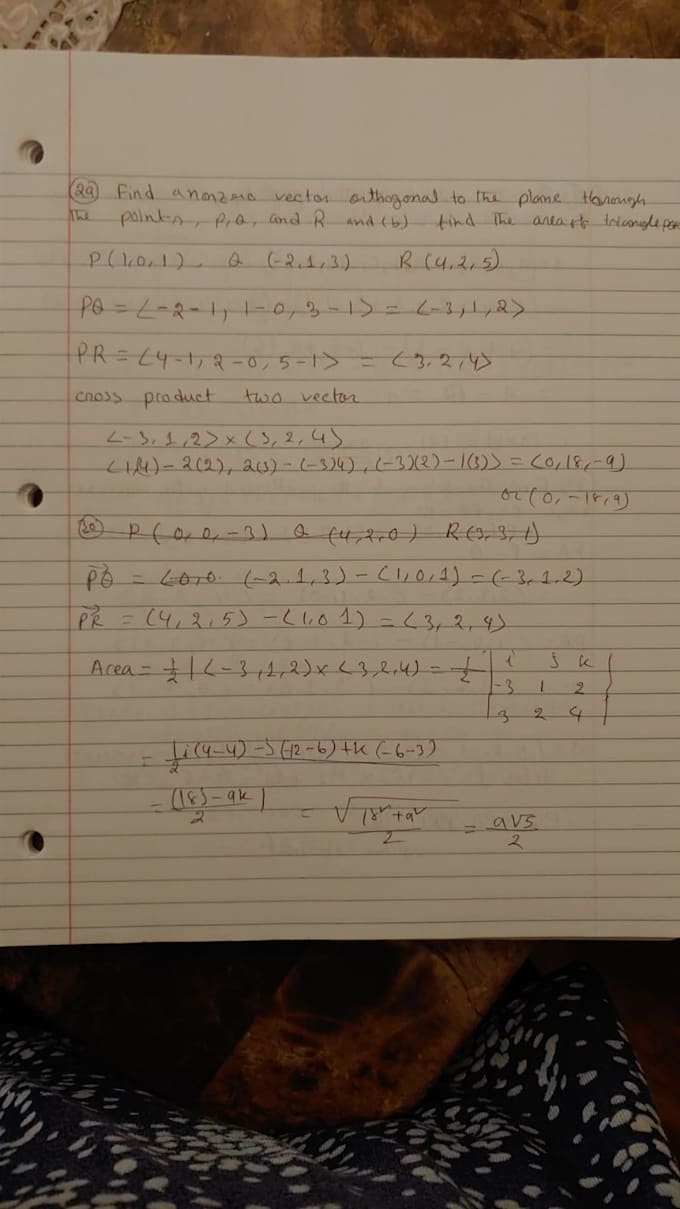 29 Find a nonzero vector orthogonal to the plane through
The points, P, Q, and R and (b) find The area of triangle
P(1,0,1). Q (-2,1,3) R(4,2,5)
PQ = <-2-1, 1-0, 3-1> = <-3,1,2>
PR = <4-1, 2-0, 5-1> = <3,2,4>
cross product two vector
<-3,1,2> x <3,2,4>
<1(4)-2(2), 2(3)-(-3)4, (-3)(2)-1(3)> = <0,18,-9)
or (0,-18,9)
30 P(0,0,-3) Q (4,2,0) R(3,3,1)
PQ = <0,0. (-2.1,3)-(1,0,1) = (-3,1.2)
PR = (4,2,5) - <1,0 1) = <3,2,4)
Area = 1/2 |<-3,1,2)x<3,2,4) = 1/2 | i j k
-3 1 2
3 2 4 |
= 1/2 |i(4-4)-j(-12-6)+k(-6-3)
= (18j-9k| / 2 = √18²+9² / 2 = 9√5 / 2